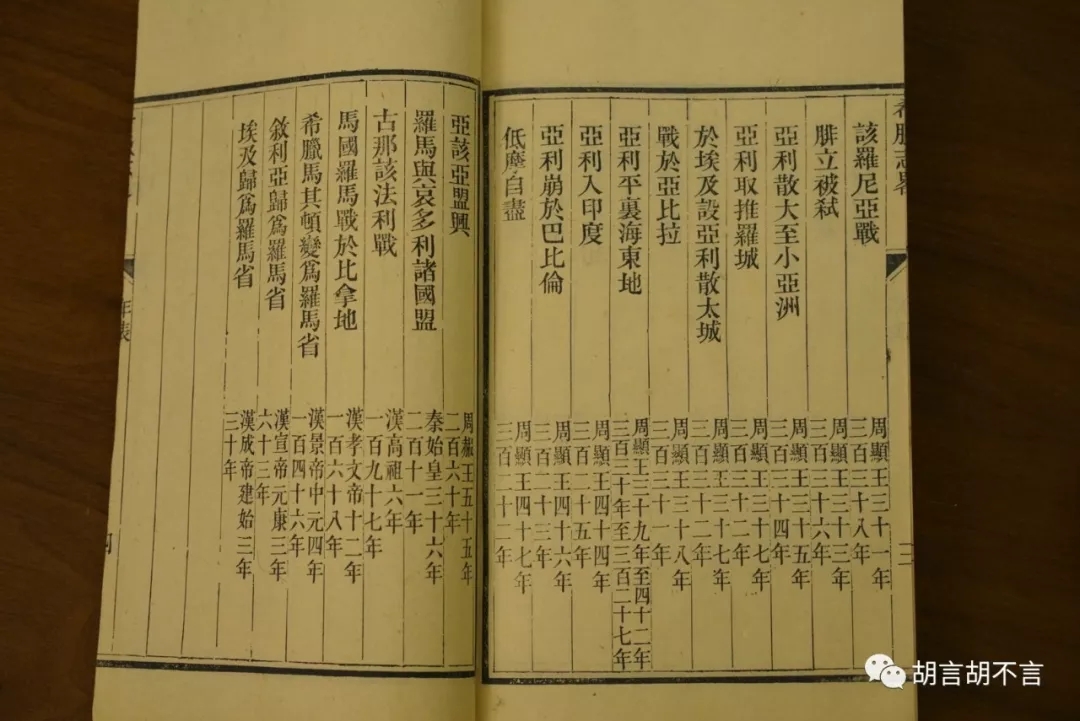 希臘志畧
三
該羅尼亞戰
周顯王三十一年
三百三十八年
腓立被弒
周顯王三十三年
三百三十六年
亞利散大至小亞洲
周顯王三十五年
三百三十四年
亞利取推羅城
周顯王三十七年
三百三十二年
於埃及設亞利散太城
周顯王三十七年
三百三十二年
戰於亞比拉
周顯王三十八年
三百三十一年
亞利平裏海東地
周顯王三十九年至四十二年
三百三十年至三百二十七年
亞利入印度
周顯王四十四年
三百二十五年
亞利崩於巴比倫
周顯王四十六年
三百二十三年
低摩自盡
周顯王四十七年
三百二十二年
亞該亞盟興
周赧王五十五年
二百六十年
羅馬與哀多利諸國盟
秦始皇三十六年
二百十一年
古那該法利戰
漢高祖六年
一百九十七年
馬國羅馬戰於比拿地
漢孝文帝十二年
一百六十八年
希臘馬其頓變爲羅馬省
漢景帝中元四年
一百四十六年
敘利亞歸爲羅馬省
漢宣帝元康三年
六十三年
埃及歸爲羅馬省
漢成帝建始三年
三十年
年表
四
胡言胡不言